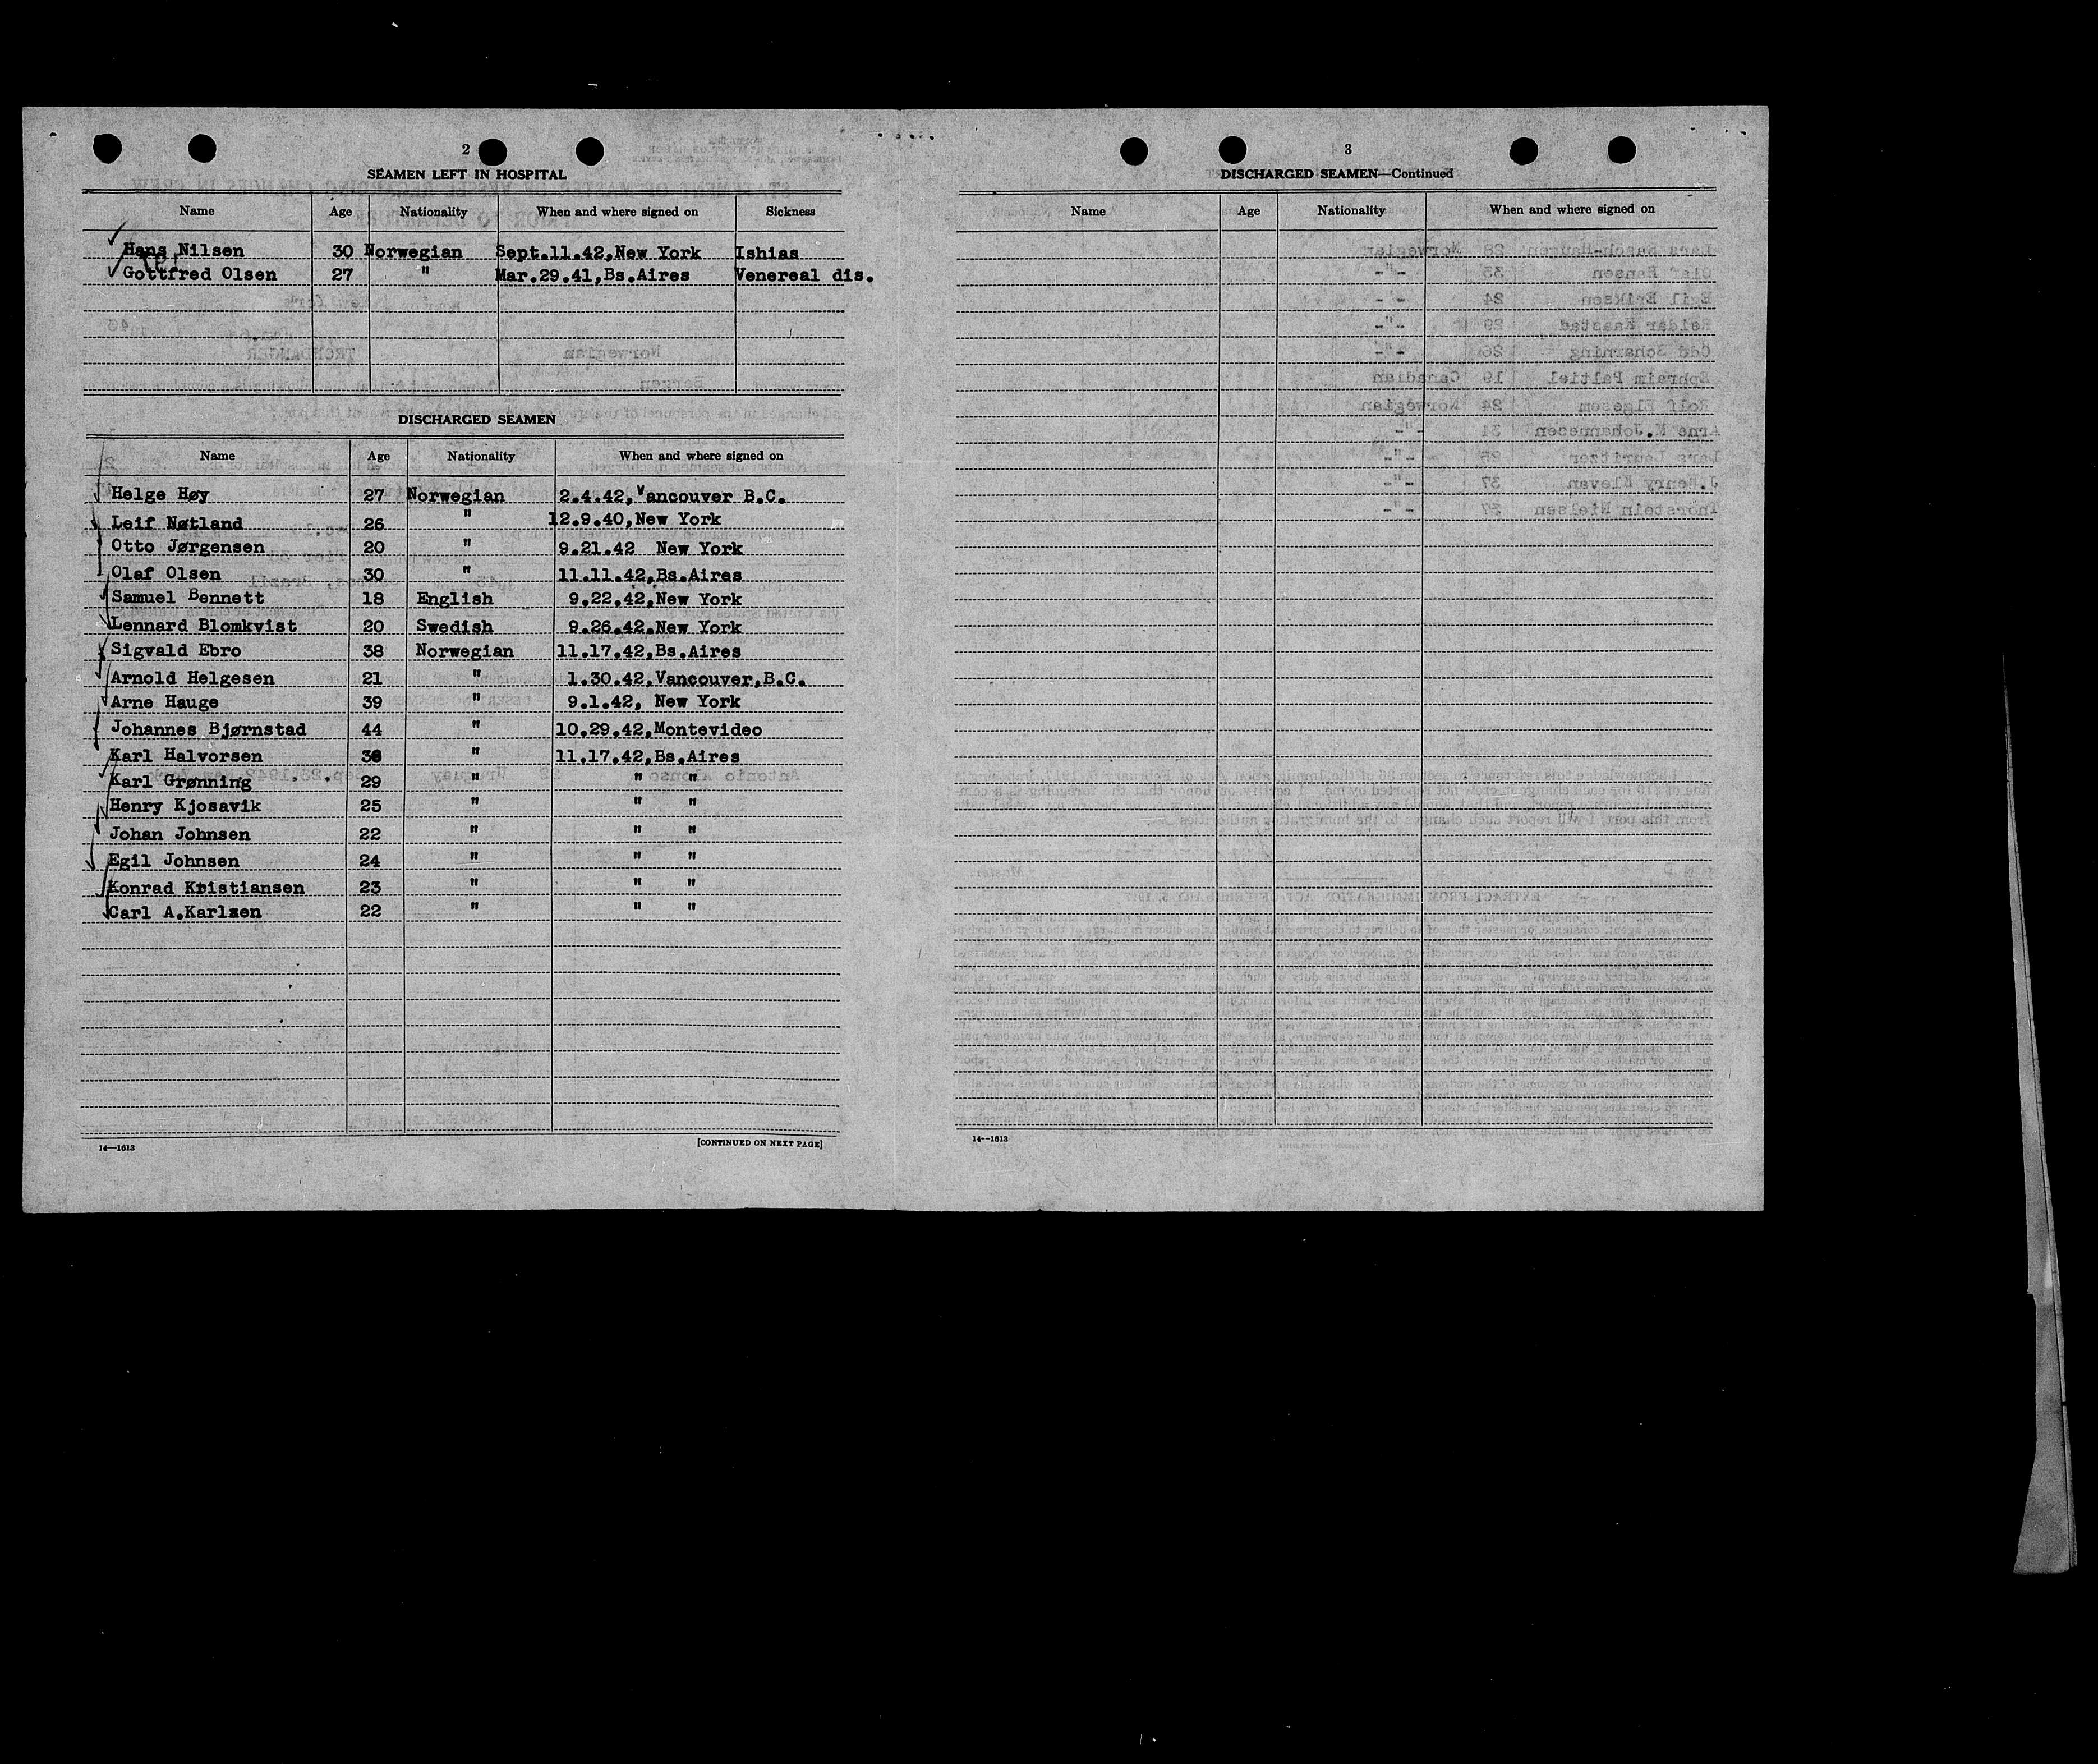 2
SEAMEN LEFT IN HOSPITAL
Name Age Nationality When and where signed on Sickness
Hans Nilsen 30 Norwegian Sept.11.42,New York Ishias
Gottfred Olsen 27 " Mar.29.41,Bs.Aires Venereal dis.
DISCHARGED SEAMEN
Name Age Nationality When and where signed on
Helge Høy 27 Norwegian 2.4.42,Vancouver B.C.
Leif Nøtland 26 " 12.9.40,New York
Otto Jørgensen 20 " 9.21.42 New York
Olaf Olsen 30 " 11.11.42,Bs.Aires
Samuel Bennett 18 English 9.22.42,New York
Lennard Blomkvist 20 Swedish 9.26.42.New York
Sigvald Ebro 38 Norwegian 11.17.42,Bs.Aires
Arnold Helgesen 21 " 1.30.42,Vancouver,B.C.
Arne Hauge 39 " 9.1.42, New York
Johannes Bjørnstad 44 " 10.29.42,Montevideo
Karl Halvorsen " 11.17.42,Bs.Aires
Karl Grønning 29 " " "
Henry Kjosavik 25 " " "
Johan Johnsen 22 " " "
Egil Johnsen 24 " " "
Konrad Kristiansen 23 " " "
Carl A.Karlsen 22 " " "
14—1613 [CONTINUED ON NEXT PAGE]
3
DISCHARGED SEAMEN—Continued
Name Age Nationality When and where signed on
14—1613